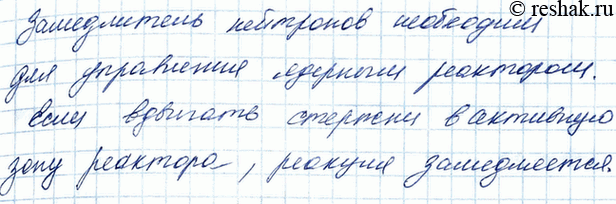 © reshak.ru
Замедлитель нейтронов необходим
для управления ядерным реактором.
Если вдвигать стержни в активную
зону реактора, реакция замедляется.